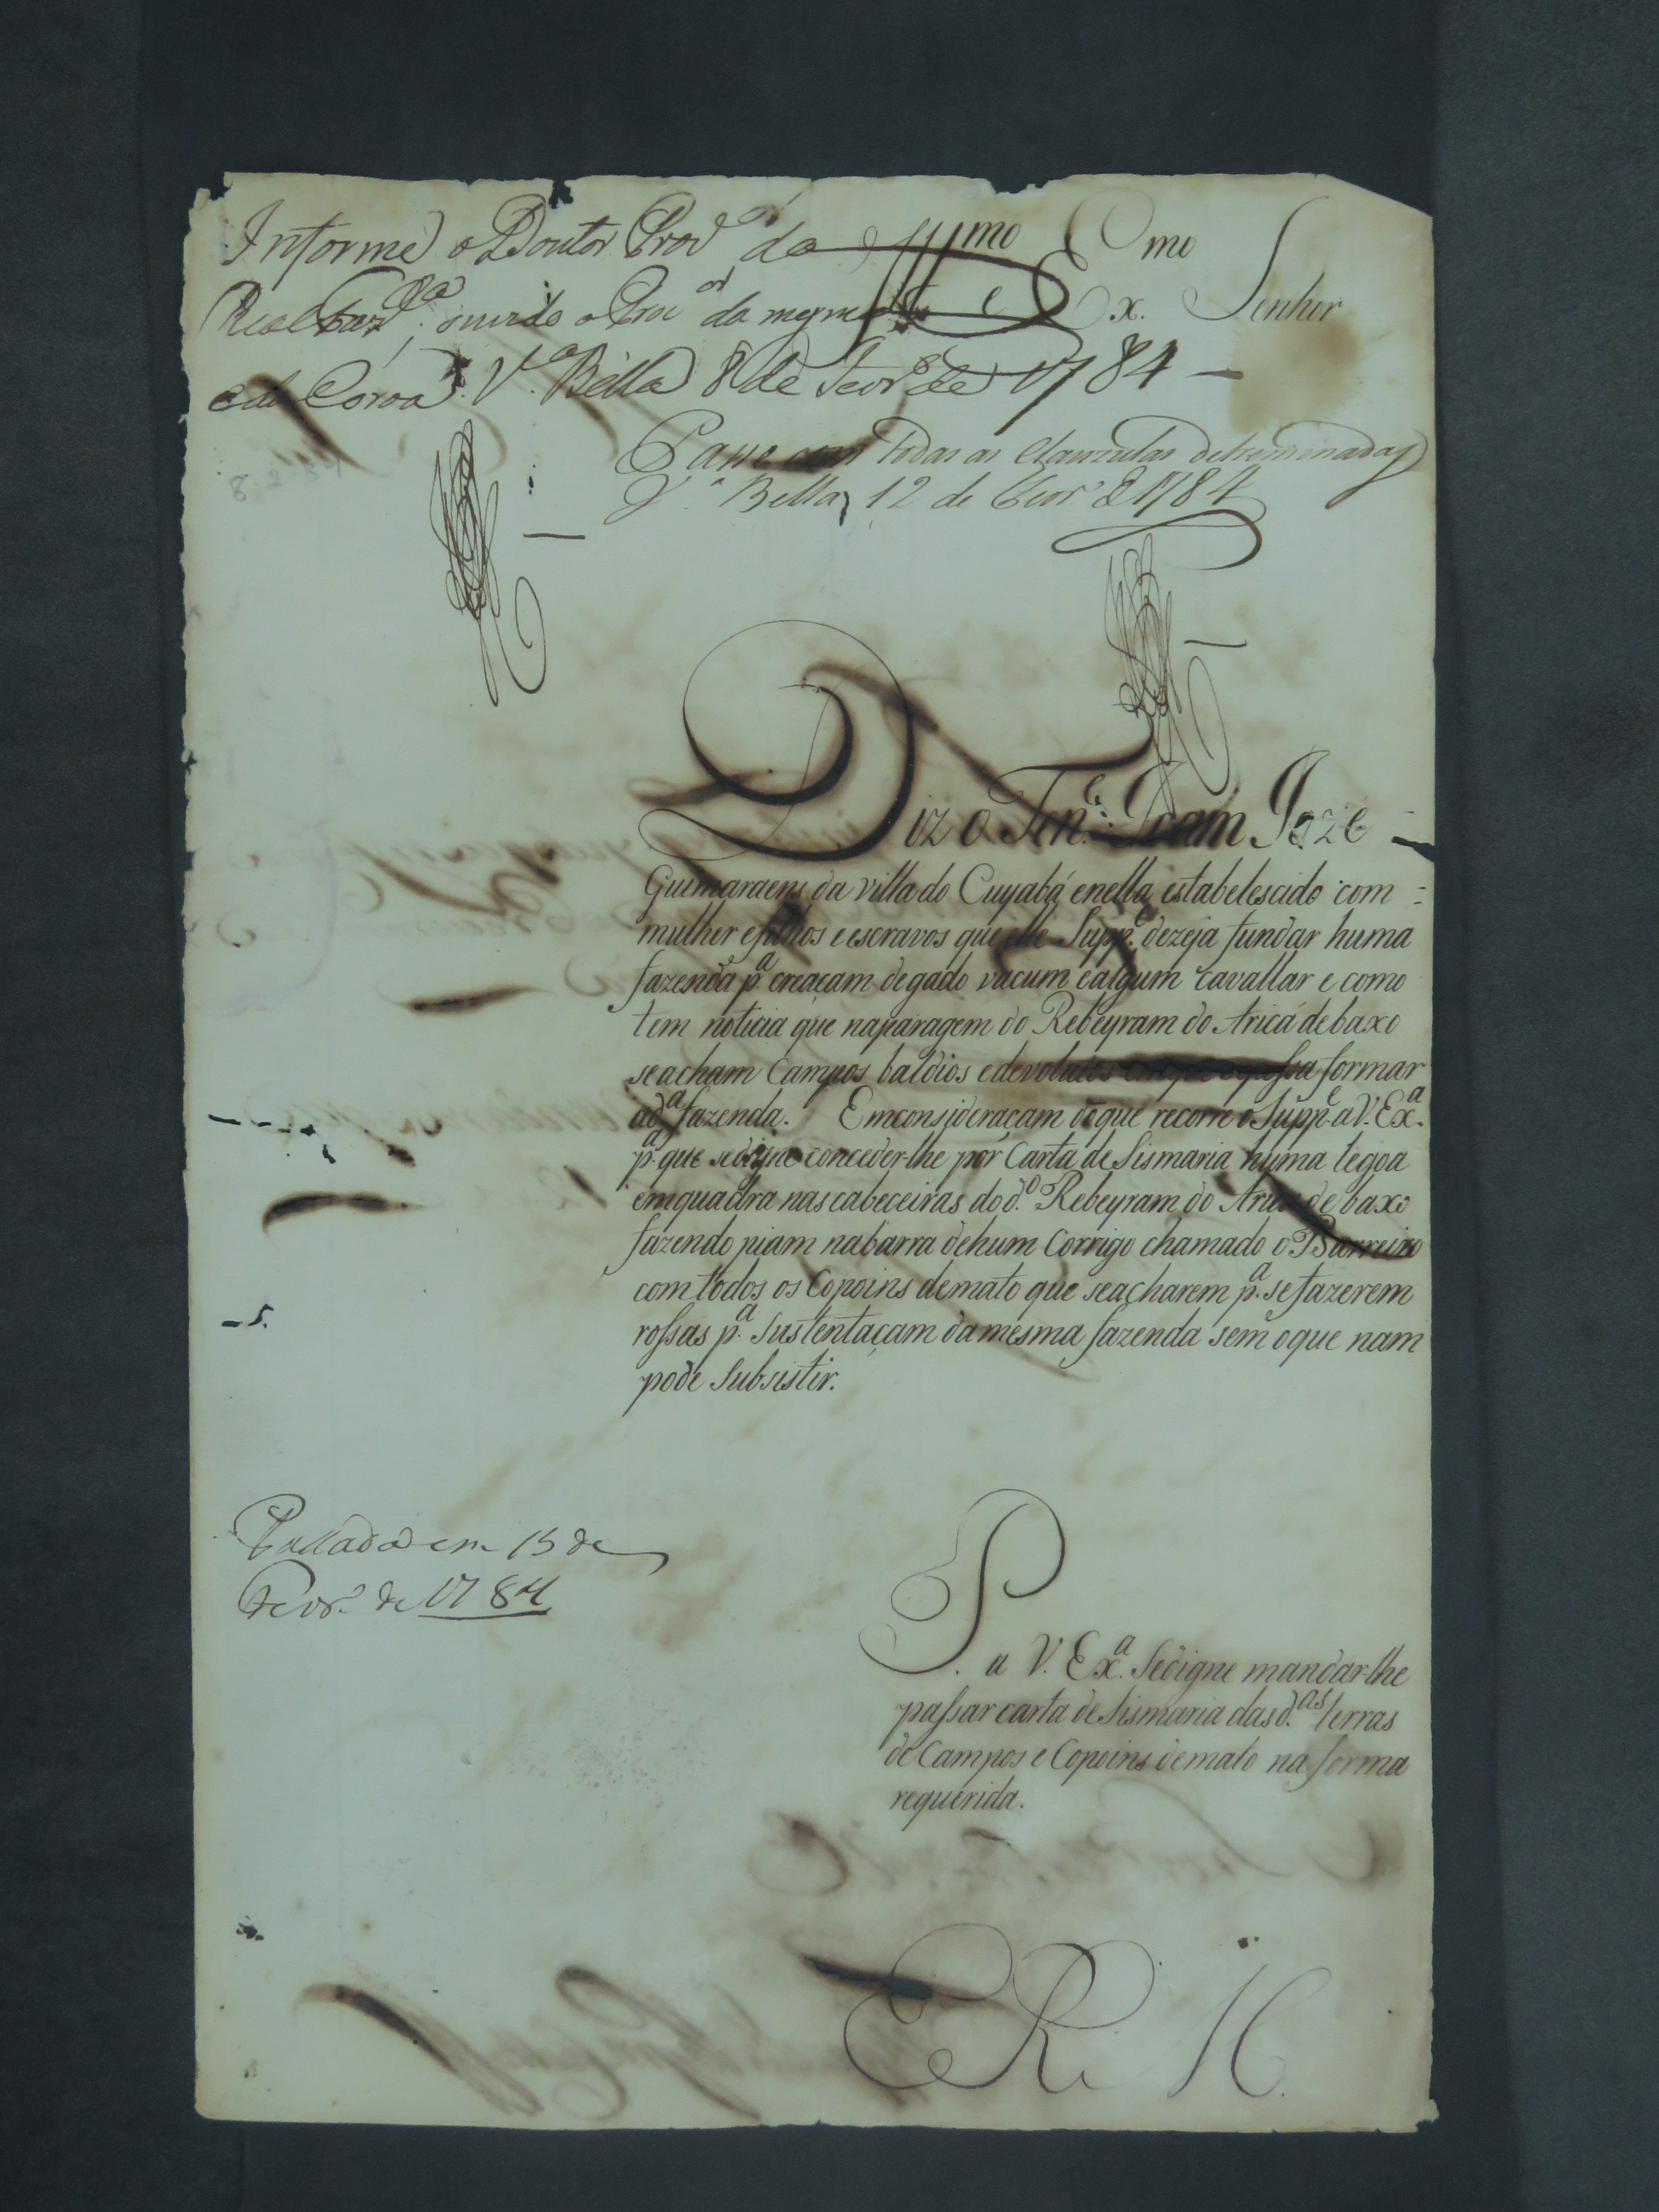 Informe o Doutor Prov.or da
Real Faz.da, ouvido o Proc.or da mesma
e da Coroa. V.a Bella 8 de Fevr.o de 1784
Illmo e Exmo Senhor
8-2-84
Passe com todas as Clauzulas determinadas
V.a Bella, 12 de Fevr.o de 1784
Diz o Ten.e Joam Joze
Guimaraens da villa do Cuyabá e nella estabelescido com
mulher e filhos e escravos que elle Supp.e dezeja fundar huma
fazenda p.a creaçam de gado vacum e algum cavallar e como
tem noticia que na paragem do Rebeyram do Aricá debaxo
se acham Campos baldios e devolutos em que se possa formar
a d.a fazenda. Em consideraçam do que recorre o Supp.e a V. Ex.a
p.a que se digne conceder-lhe por Carta de Sismaria huma legoa
em quadra nas cabeceiras do d.o Rebeyram do Aricá debaxo
fazendo piam na barra de hum Corrigo chamado o Barreiro
com todos os Copoins de mato que se acharem p.a se fazerem
rossas p.a Sustentaçam da mesma fazenda sem o que nam
pode Subsistir.
Passada em 15 de
Fevr.o de 1784
P. a V. Ex.a Se digne mandar-lhe
passar carta de Sismaria das d.as terras
de Campos e Copoins de mato na forma
requerida.
E R M.